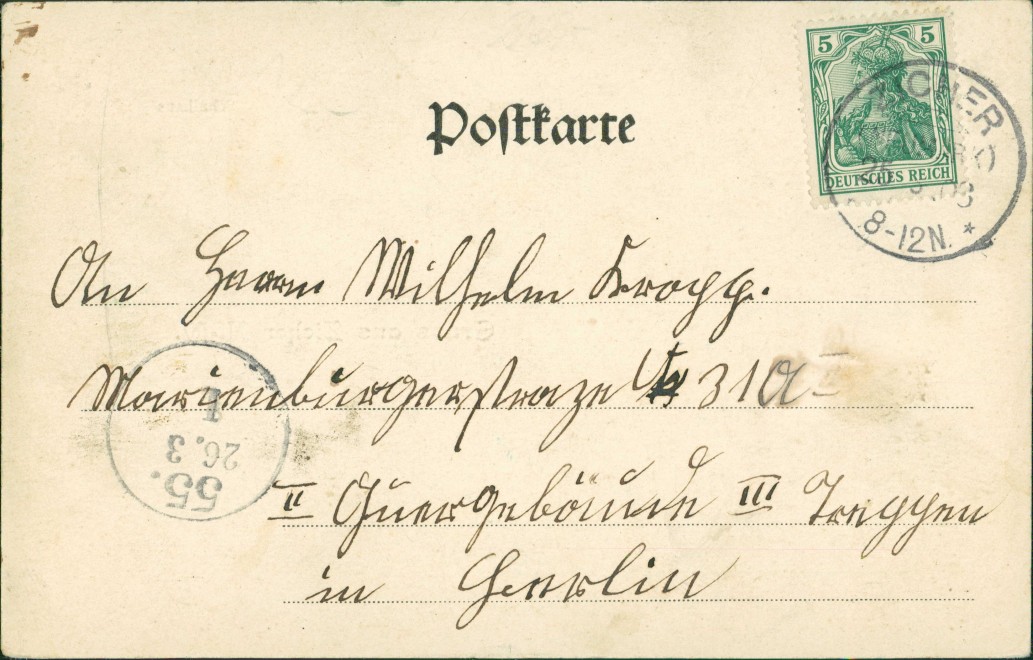 5 5
DEUTSCHES REICH
ICHER
8-12N. *
Postkarte
An Herrn Wilhelm Kropp.
Marienburgerstraze 31a I
II Quergebäude III Treppen
in Berlin
1
26.3
55.